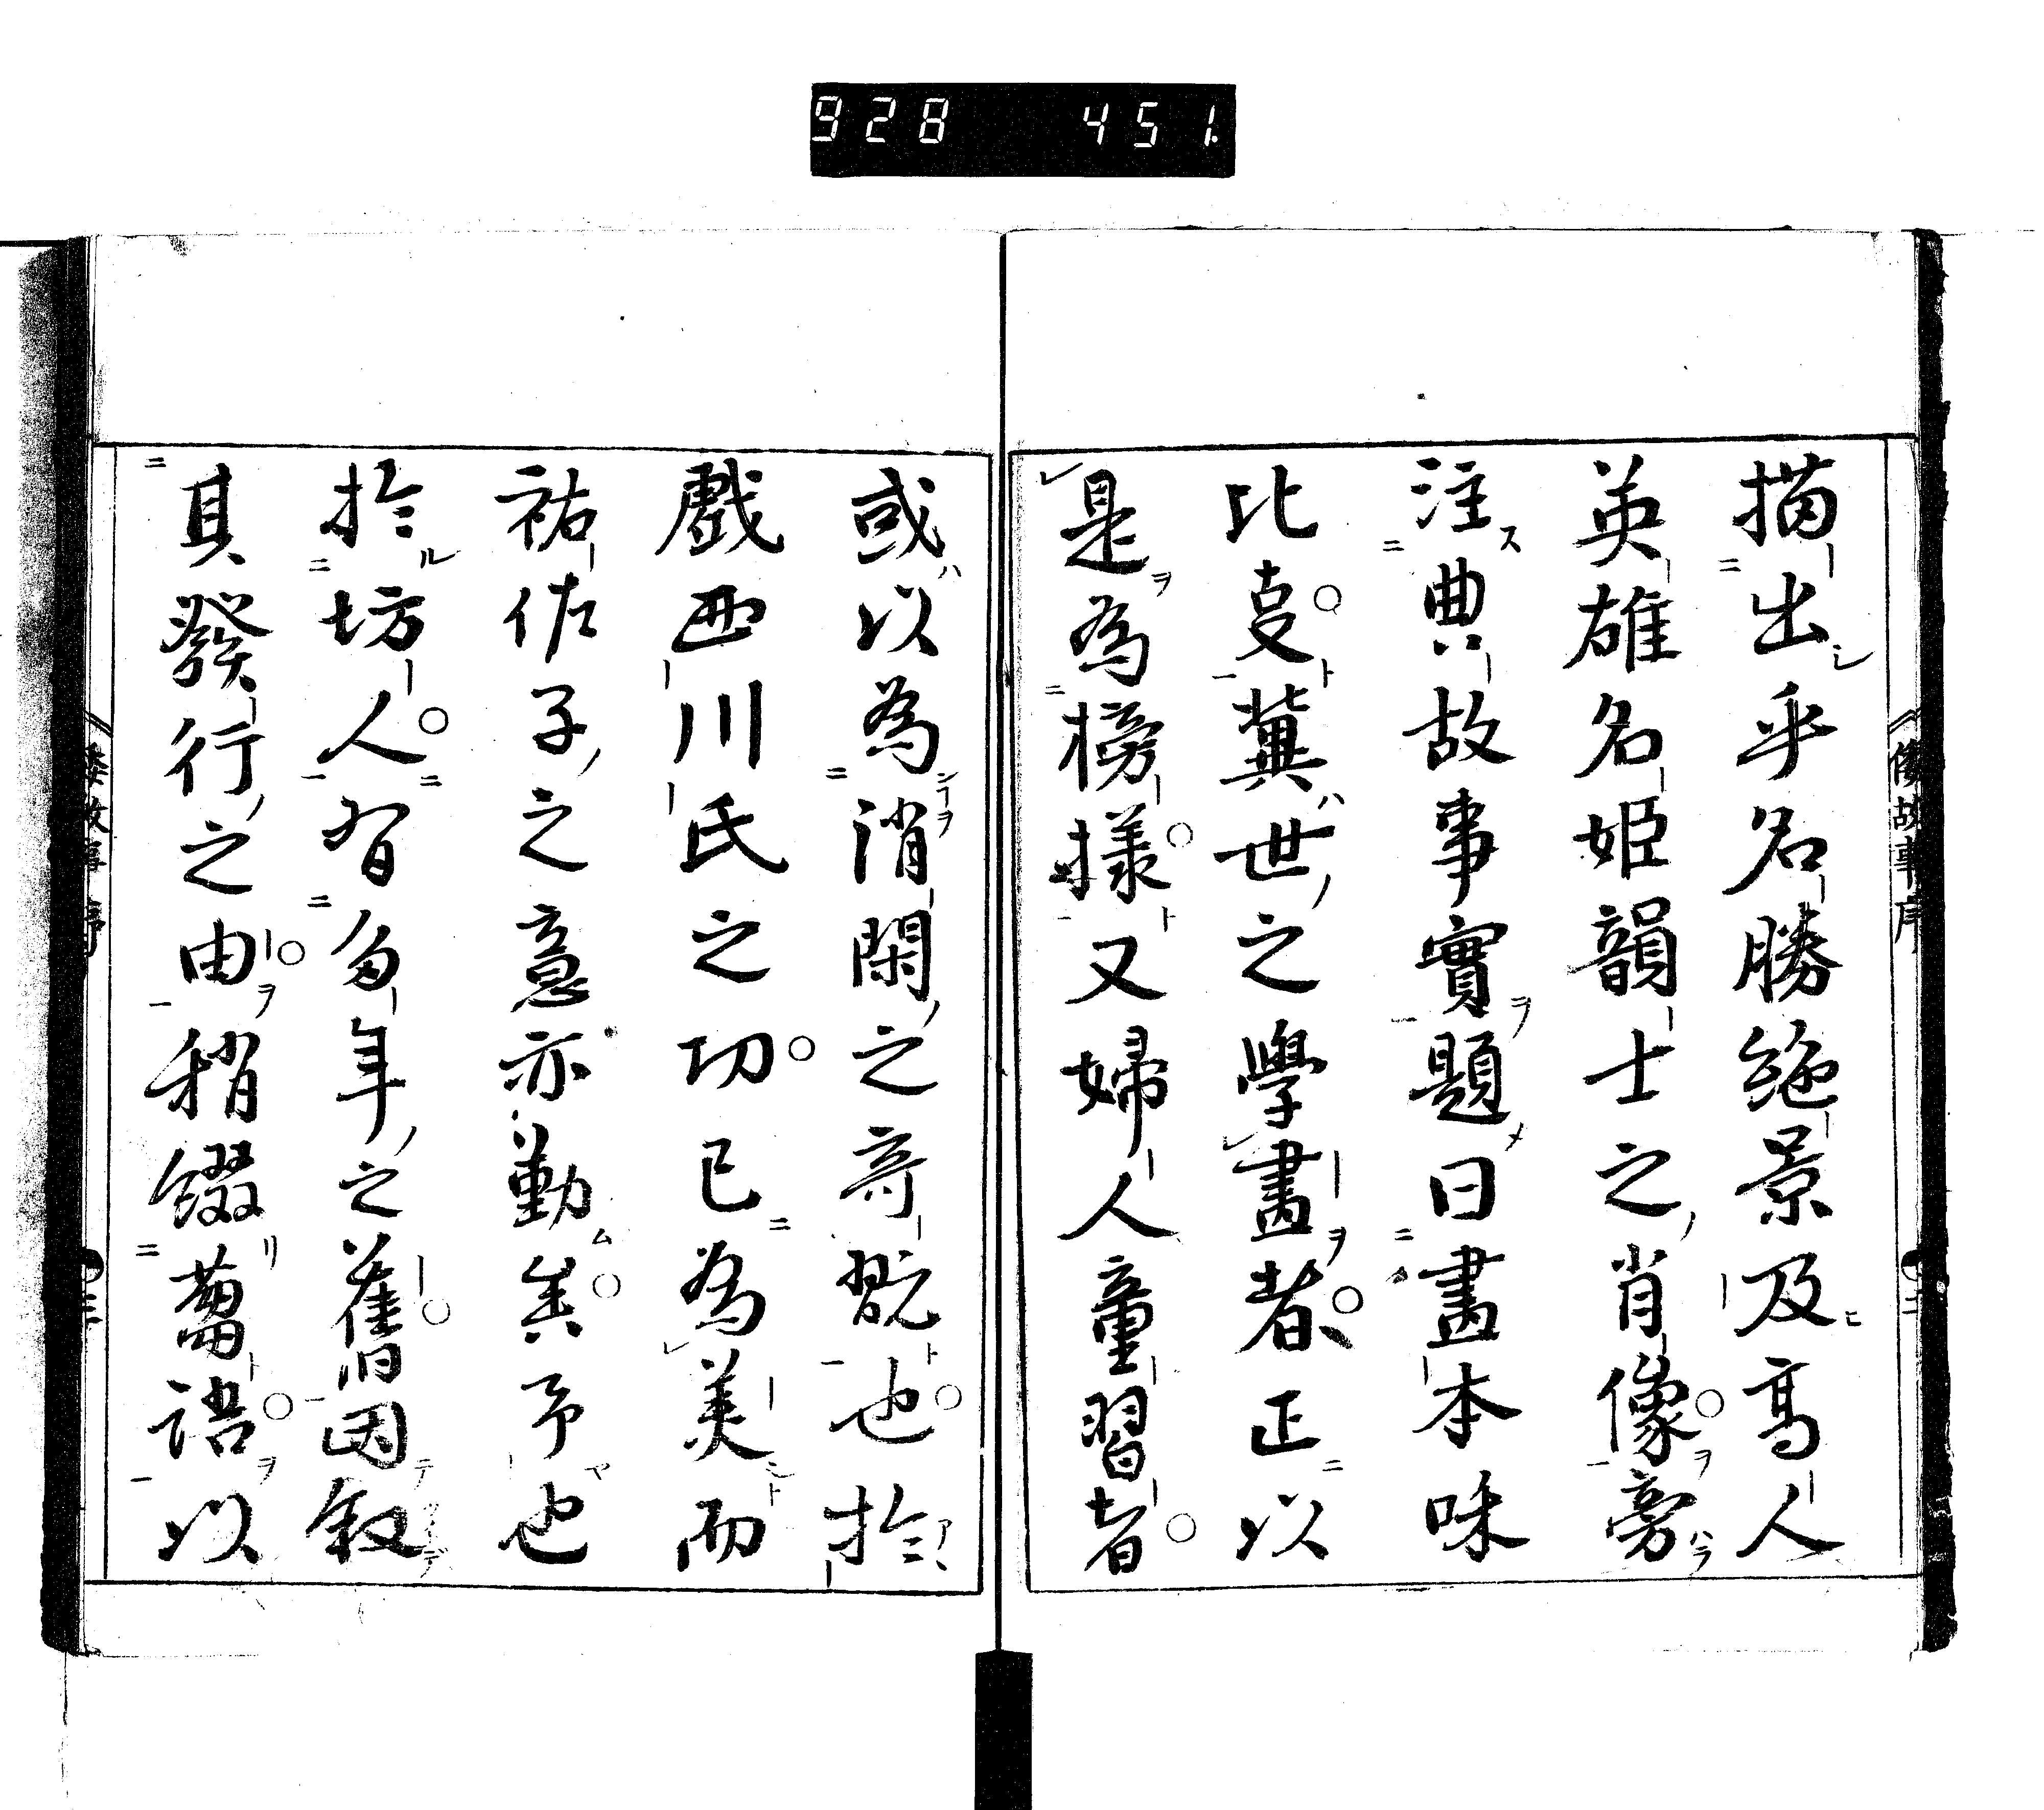 928 451
描出乎名勝絶景及高人
英雄名姫韻士之肖像旁
注典故事實題曰畫本味
比㕝蕪世之學畫者正以
是為榜様又婦人童習者
或以為消閑之竒翫也於
戲西川氏之功已為美而
祐佐子之意亦勤矣予也
於坊人有多年之舊因叙
其發行之由稍綴蒭語以